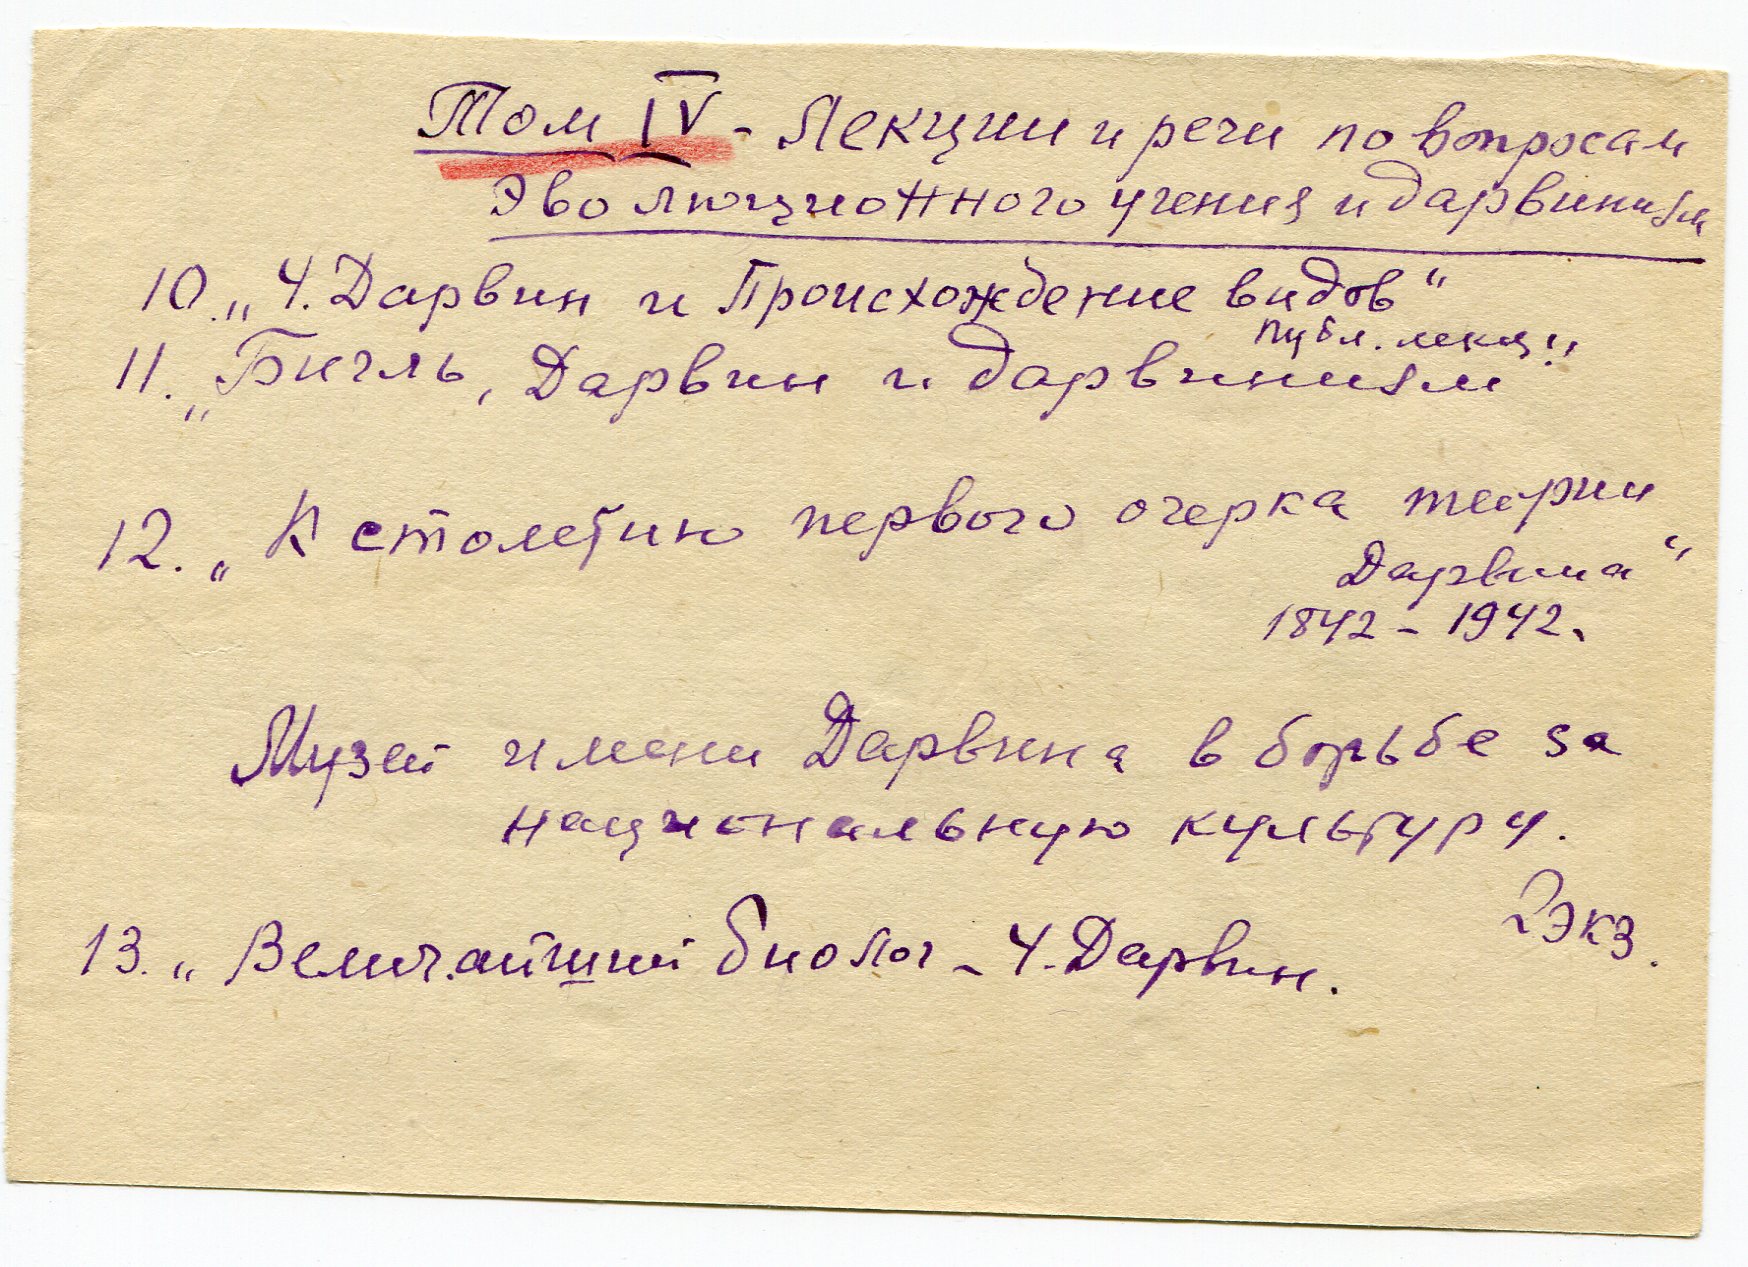 Том IV - Лекции и речи по вопросам
Эволюционного учения и дарвинизм
10. „Ч. Дарвин и Происхождение видов“
публ. лекц.
11. „Бигль, Дарвин и дарвинизм“
12. „К столетию первого очерка теории
Дарвина“
1842 - 1942.
Музей имени Дарвина в борьбе за
национальную культуру.
2 экз.
13. „Величайший биолог - Ч. Дарвин.